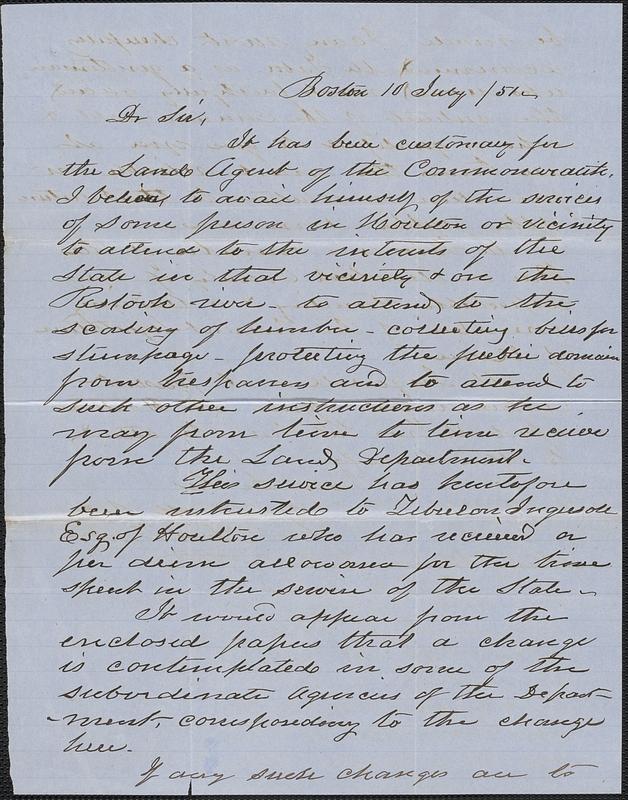 Boston 10 July /51.
Dr Sir,
It has been customary for
the Land Agent of the Commonwealth,
I believe, to avail himself of the services
of some person in Houlton or vicinity
to attend to the interests of the
State in that vicinity & on the
Ristook river - to attend to the
scaling of lumber - collecting bills for
stumpage - protecting the public domain
from trespassers and to attend to
such other instructions as he
may from time to time receive
from the Land Department.
This service has heretofore
been intrusted to Zebulon Ingersoll
Esq. of Houlton who has received a
per diem allowance for the time
spent in the service of the State -
It would appear from the
enclosed papers that a change
is contemplated in some of the
subordinate Agencies of the Depart-
-ment, corresponding to the change
here.
If any such changes are to